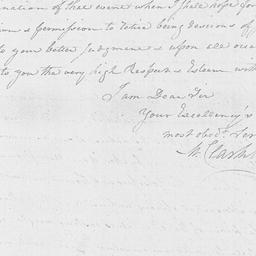 nation of that event when I shall hope for
Permission to retire being desirous of
to your better Judgment as upon all occa
to you the very high Respect & Esteem with
I am Dear Sir
Your Excellency's
most obedt. Ser